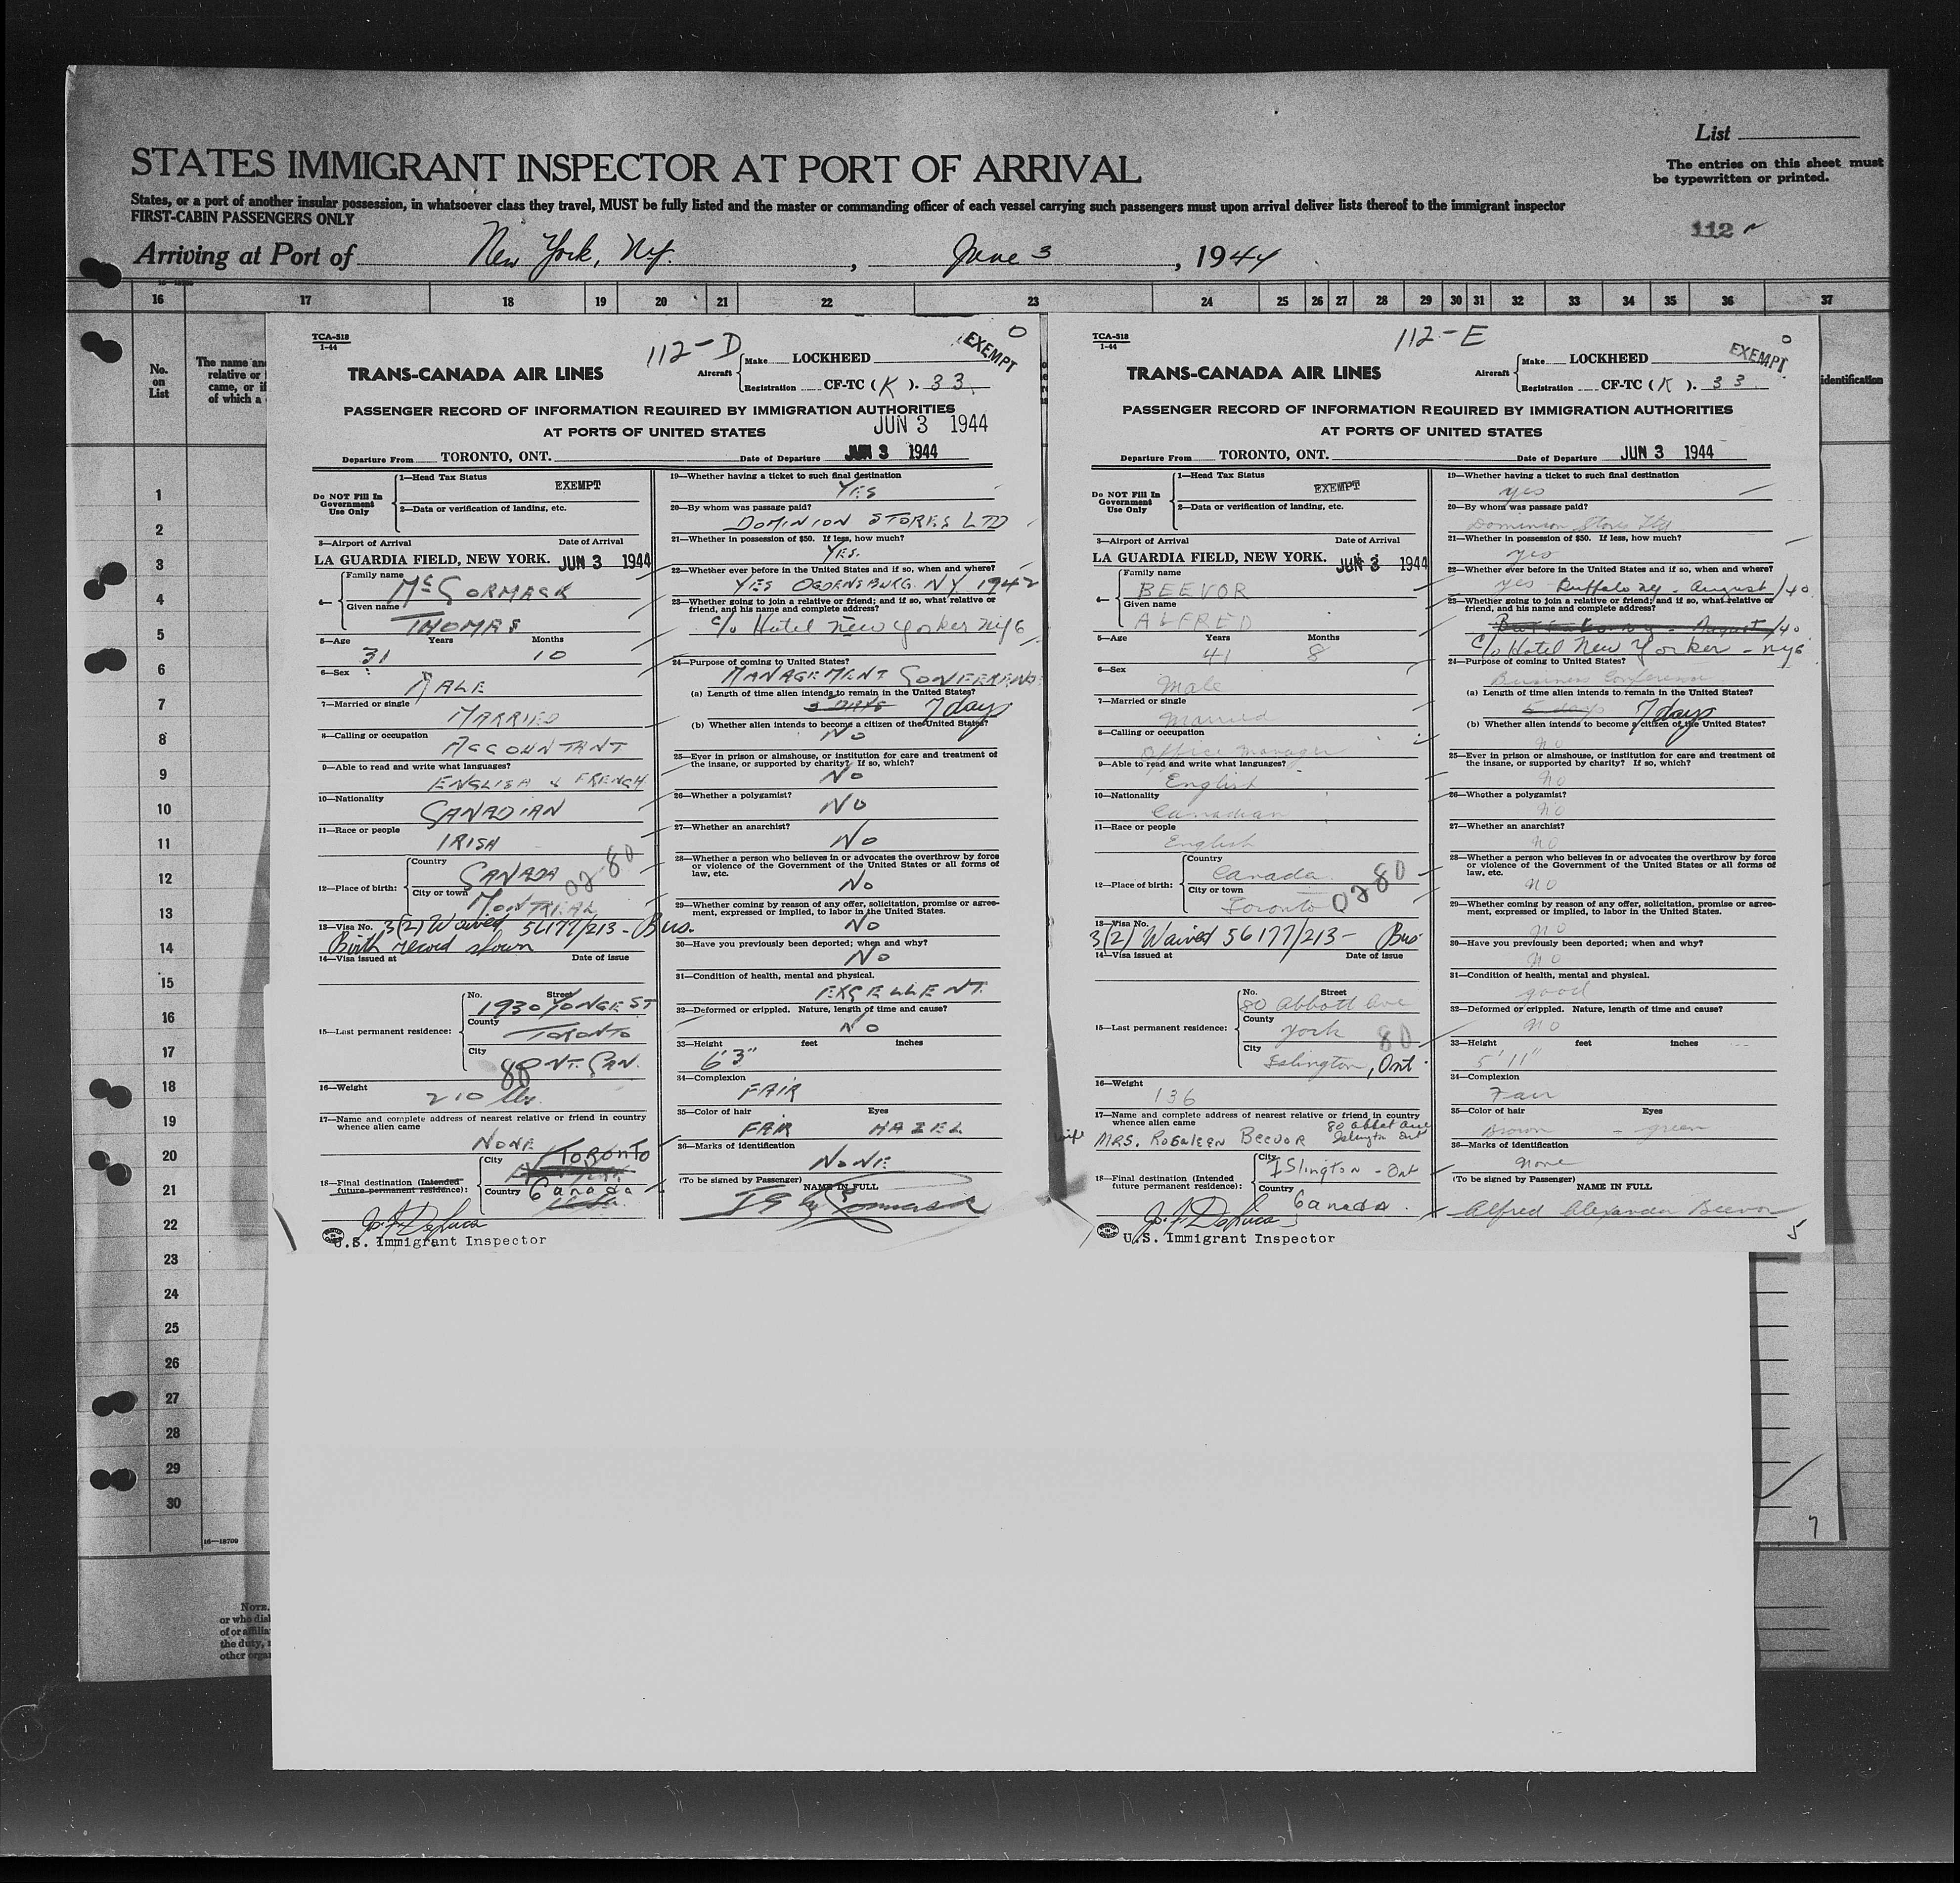 List
STATES IMMIGRANT INSPECTOR AT PORT OF ARRIVAL
The entries on this sheet must
be typewritten or printed.
States, or a port of another insular possession, in whatsoever class they travel, MUST be fully listed and the master or commanding officer of each vessel carrying such passengers must upon arrival deliver lists thereof to the immigrant inspector
FIRST-CABIN PASSENGERS ONLY
112
Arriving at Port of New York, N.Y., June 3, 1944
16 17 18 19 20 21 22 23 24 25 26 27 28 29 30 31 32 33 34 35 36 37
No.
on
List
The name an
relative or
came, or if
of which a
identification
1
2
3
4
5
6
7
8
9
10
11
12
13
14
15
16
17
18
19
20
21
22
23
24
25
26
27
28
29
30
16—18709
NOTE.
or who dis
of or affilia
the duty,
other orga
7
TCA-518
1-44
112-D
EXEMPT
TRANS-CANADA AIR LINES
Aircraft
Make LOCKHEED
Registration CF-TC (K). 33
PASSENGER RECORD OF INFORMATION REQUIRED BY IMMIGRATION AUTHORITIES
AT PORTS OF UNITED STATES
JUN 3 1944
Departure From TORONTO, ONT. Date of Departure JUN 3 1944
Do NOT Fill In
Government
Use Only
1—Head Tax Status EXEMPT
2—Data or verification of landing, etc.
3—Airport of Arrival Date of Arrival
LA GUARDIA FIELD, NEW YORK. JUN 3 1944
4—
Family name McCORMACK
Given name THOMAS
5—Age Years Months
31 10
6—Sex
MALE
7—Married or single
MARRIED
8—Calling or occupation
ACCOUNTANT
9—Able to read and write what languages?
ENGLISH & FRENCH
10—Nationality
CANADIAN
11—Race or people
IRISH
12—Place of birth:
Country CANADA
City or town MONTREAL
02-80
13—Visa No. 3(2) Waived 56177/213 - Bus.
Birth record shown
14—Visa issued at Date of issue
15—Last permanent residence:
No. Street
1930 YONGE ST
County
TORONTO
City
ONT. CAN.
80
16—Weight
210 lbs.
17—Name and complete address of nearest relative or friend in country
whence alien came
NONE
18—Final destination (Intended
future permanent residence):
City TORONTO
Country Canada
U.S. Immigrant Inspector
19—Whether having a ticket to such final destination
YES
20—By whom was passage paid?
DOMINION STORES LTD
21—Whether in possession of $50. If less, how much?
YES.
22—Whether ever before in the United States and if so, when and where?
YES OGDENSBURG NY 1942
23—Whether going to join a relative or friend; and if so, what relative or
friend, and his name and complete address?
c/o Hotel New Yorker NYC
24—Purpose of coming to United States?
MANAGEMENT CONFERENCE
(a) Length of time alien intends to remain in the United States?
7 days
(b) Whether alien intends to become a citizen of the United States?
NO
25—Ever in prison or almshouse, or institution for care and treatment of
the insane, or supported by charity? If so, which?
NO
26—Whether a polygamist?
NO
27—Whether an anarchist?
NO
28—Whether a person who believes in or advocates the overthrow by force
or violence of the Government of the United States or all forms of
law, etc.
NO
29—Whether coming by reason of any offer, solicitation, promise or agree-
ment, expressed or implied, to labor in the United States.
NO
30—Have you previously been deported; when and why?
NO
31—Condition of health, mental and physical.
EXCELLENT
32—Deformed or crippled. Nature, length of time and cause?
NO
33—Height feet inches
6'3"
34—Complexion
FAIR
35—Color of hair Eyes
FAIR HAZEL
36—Marks of identification
NONE
(To be signed by Passenger)
NAME IN FULL
TCA-518
1-44
112-E
EXEMPT
TRANS-CANADA AIR LINES
Aircraft
Make LOCKHEED
Registration CF-TC (K). 33
PASSENGER RECORD OF INFORMATION REQUIRED BY IMMIGRATION AUTHORITIES
AT PORTS OF UNITED STATES
Departure From TORONTO, ONT. Date of Departure JUN 3 1944
Do NOT Fill In
Government
Use Only
1—Head Tax Status EXEMPT
2—Data or verification of landing, etc.
3—Airport of Arrival Date of Arrival
LA GUARDIA FIELD, NEW YORK. JUN 3 1944
4—
Family name BEEVOR
Given name ALFRED
5—Age Years Months
41 8
6—Sex
Male
7—Married or single
Married
8—Calling or occupation
Office Manager
9—Able to read and write what languages?
English
10—Nationality
Canadian
11—Race or people
English
12—Place of birth:
Country Canada
City or town Toronto
02 80
13—Visa No.
3(2) Waived 56177/213 - Bus
14—Visa issued at Date of issue
15—Last permanent residence:
No. Street
80 Abbott Ave
County
York 80
City
Islington, Ont.
16—Weight
136
17—Name and complete address of nearest relative or friend in country
whence alien came
80 Abbot Ave
wife MRS. ROSALEEN BEEVOR Islington Ont
18—Final destination (Intended
future permanent residence):
City Islington - Ont
Country Canada.
U.S. Immigrant Inspector
19—Whether having a ticket to such final destination
yes
20—By whom was passage paid?
Dominion Stores Ltd
21—Whether in possession of $50. If less, how much?
yes
22—Whether ever before in the United States and if so, when and where?
yes Buffalo NY - August /40
23—Whether going to join a relative or friend; and if so, what relative or
friend, and his name and complete address?
c/o Hotel New Yorker - NYC
24—Purpose of coming to United States?
Business Conference
(a) Length of time alien intends to remain in the United States?
5 days 7 days
(b) Whether alien intends to become a citizen of the United States?
no
25—Ever in prison or almshouse, or institution for care and treatment of
the insane, or supported by charity? If so, which?
no
26—Whether a polygamist?
no
27—Whether an anarchist?
no
28—Whether a person who believes in or advocates the overthrow by force
or violence of the Government of the United States or all forms of
law, etc.
no
29—Whether coming by reason of any offer, solicitation, promise or agree-
ment, expressed or implied, to labor in the United States.
no
30—Have you previously been deported; when and why?
no
31—Condition of health, mental and physical.
good
32—Deformed or crippled. Nature, length of time and cause?
no
33—Height feet inches
5'11"
34—Complexion
Fair
35—Color of hair Eyes
Brown - green
36—Marks of identification
none
(To be signed by Passenger)
NAME IN FULL
Alfred Alexander Beevor
5